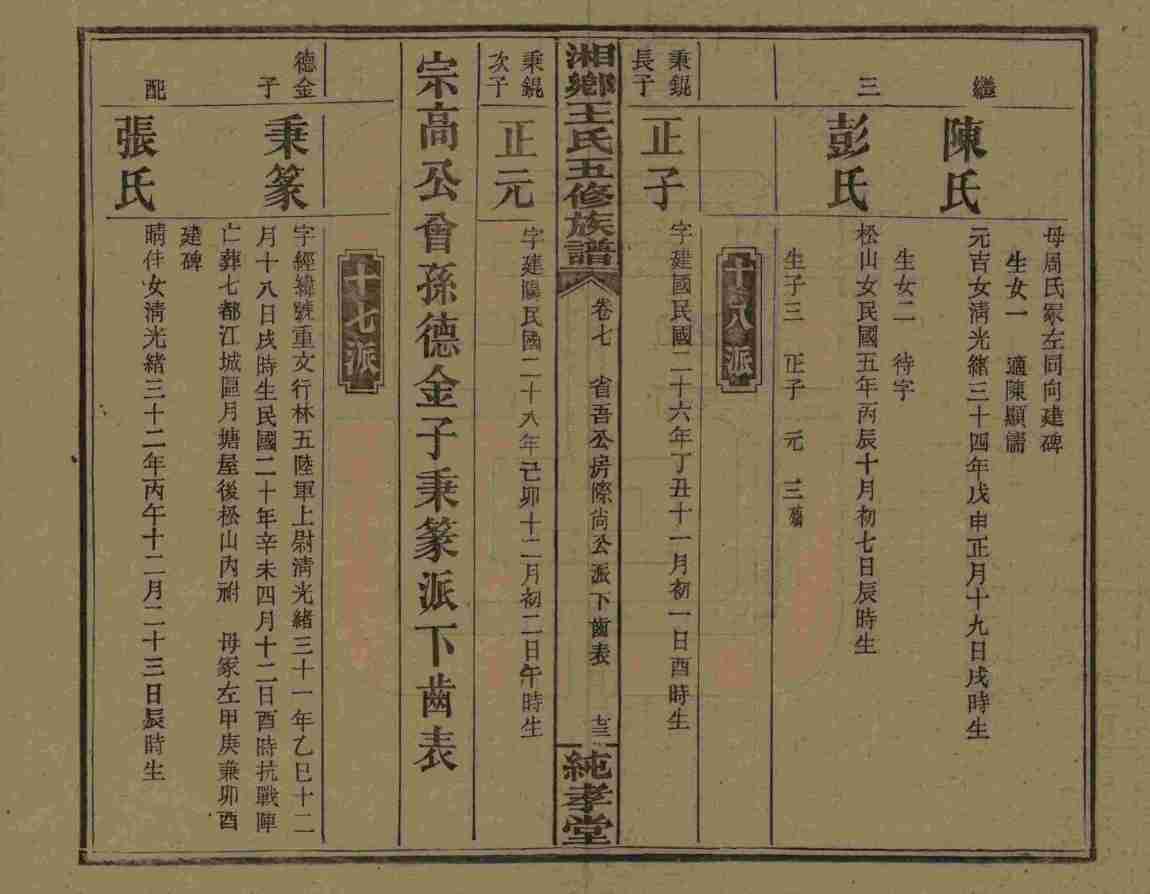 母周氏冢左同向建碑
生女一　適陳顯儒
繼
陳氏
元吉女清光緒三十四年戊申正月十九日戌時生
生女二　待字
三
彭氏
松山女民國五年丙辰十月初七日辰時生
生子三　正子　元　三蕃
十八派
秉錕
長子
正子
字建國民國二十六年丁丑十一月初一日酉時生
湘鄉王氏五修族譜
卷七　省吾公房際尚公派下齒表
純孝堂
秉錕
次子
正元
字建陽民國二十八年己卯十二月初二日午時生
宗高公曾孫德金子秉篆派下齒表
十七派
德金
子
秉篆
字經緯號重文行林五陸軍上尉清光緒三十一年乙巳十二
月十八日戌時生民國二十年辛未四月十二日酉時抗戰陣
亡葬七都江城區月塘屋後松山內祔　母冢左甲庚兼卯酉
建碑
配
張氏
晴佳女清光緒三十二年丙午十二月二十三日辰時生